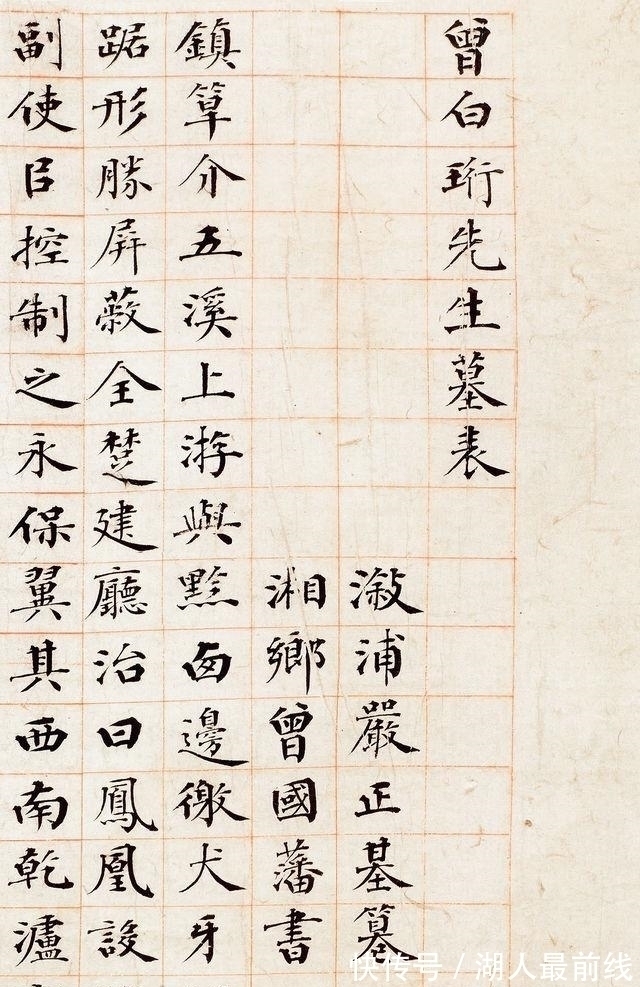 曾白珩先生墓表
漵浦嚴正基篹
湘鄉曾國藩書
鎮筸介五溪上游與黔西邊徼犬牙
踞形勝屏蔽全楚建廳治曰鳳凰設
副使臣控制之永保翼其西南乾瀘
快传号 / 湖人最前线